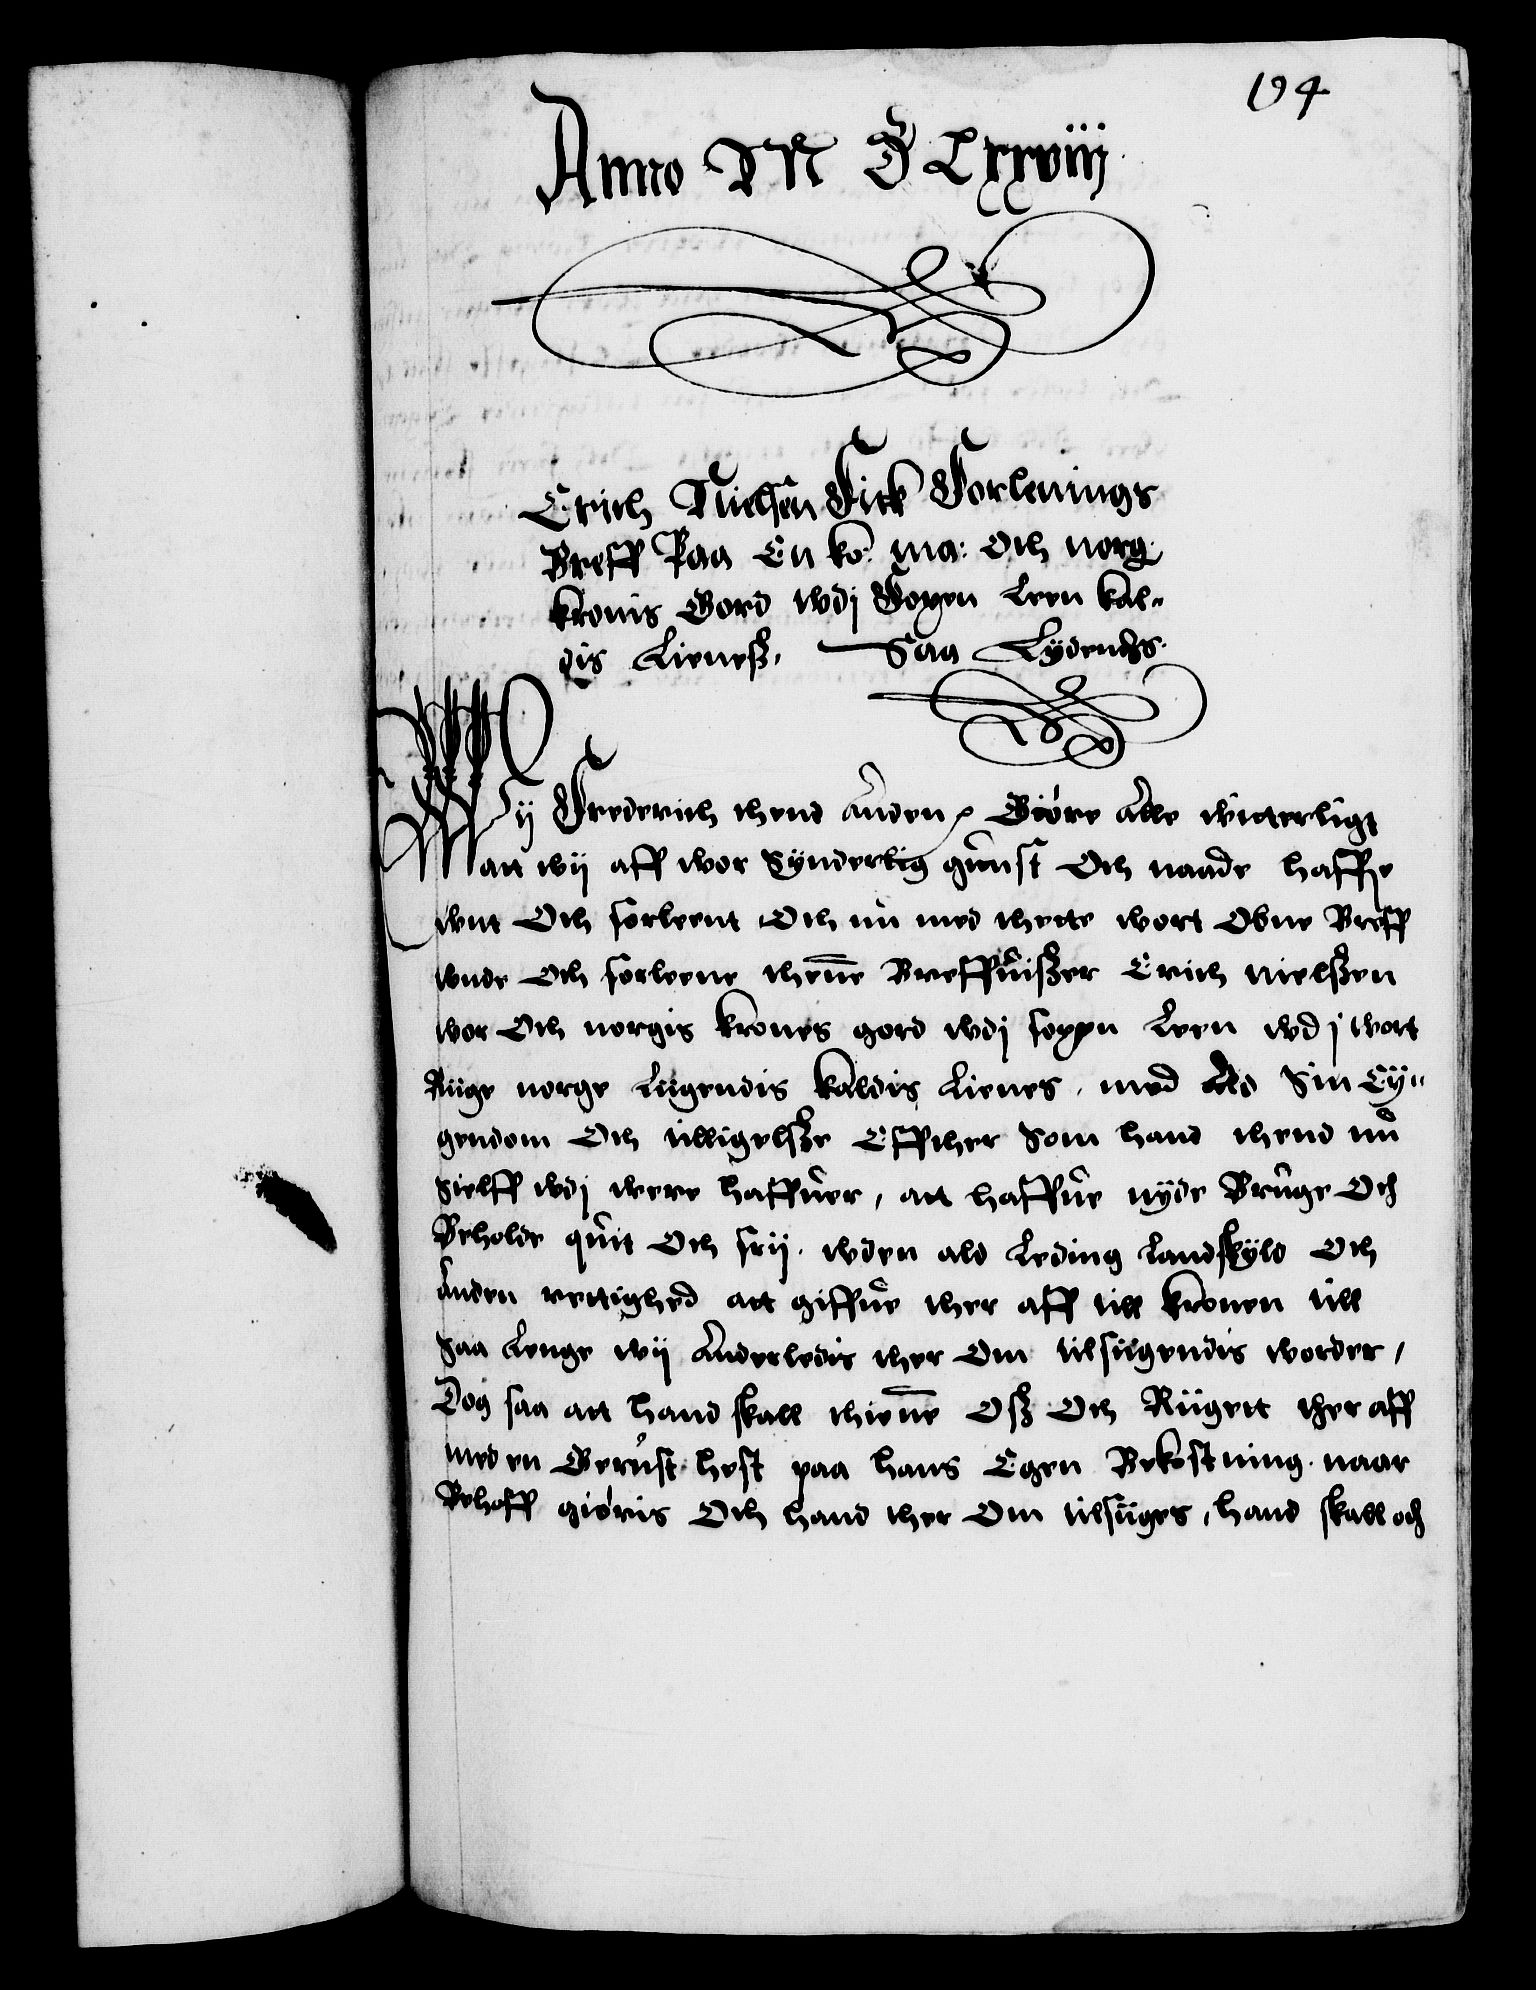 194
Anno M D Lxxviij
Erich Nielsen Fick Forlenings
Breff Paa En ko: ma: Och norg.
kronis Gord wdj Foyen Leen kal-
dis Lieneß, Saa Lydendhs.
Wij Frederich thend Anden, Giøre Alle witterligt
att wij aff wor Synderlig gunst Och naade haffue
wnt Och forleent Och nu med thette wort Obne Breff
wnde Och forleene thenne Breffuißer Erich nielßen
wor Och norgis krones gord wdj foyen Leen wdj wort
Riige norge Liigendis kaldis Lienes, med Ald Sin Ey-
gendom Och tilligelsße Effther Som hand thend nu
Sielff wdj were haffuer, att haffue nyde Bruge Och
Beholde quit Och frij. wden ald Leding Landskyld Och
Anden rettighed att giffue ther aff till kronen till
Saa Lenge wij Anderledis ther Om tilsiigendis worder,
Dog saa att hand skall thiene Oß Och Riiget ther aff
med en Gerust hest paa hans Egen Bekostning. naar
Behoff giøris Och hand ther Om tilsiiges, hand skall och